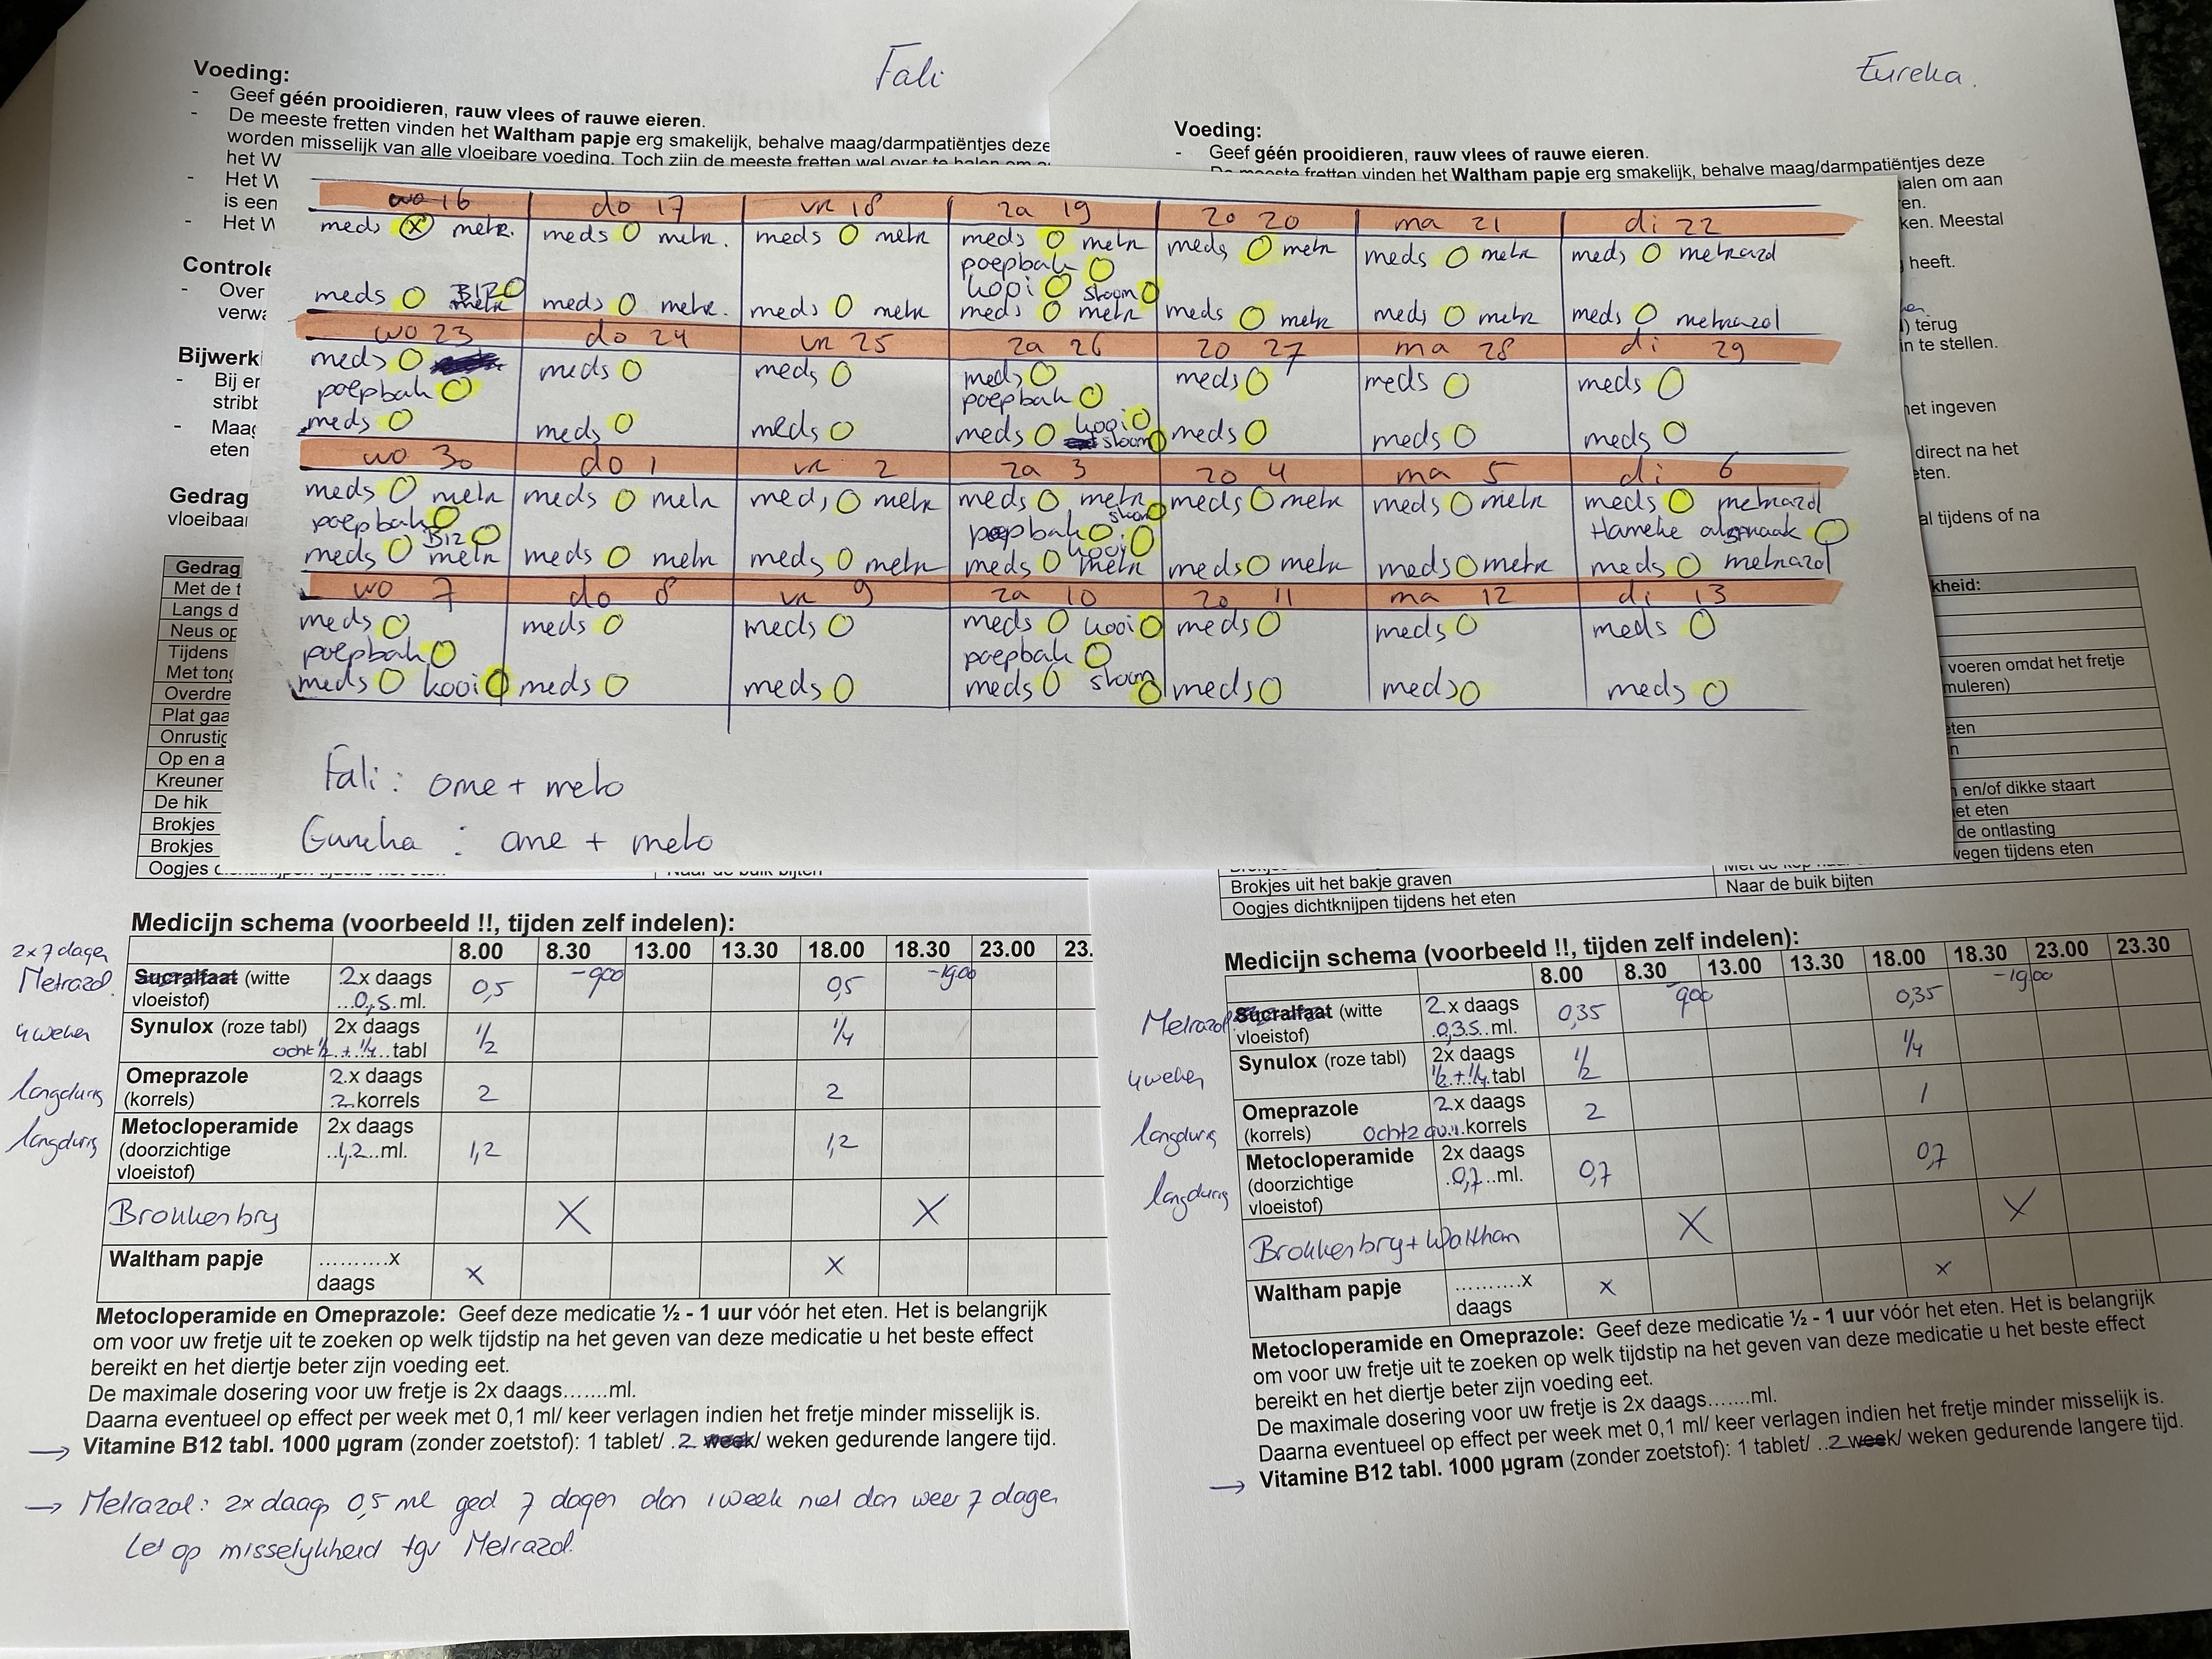 Fali
Voeding:
- Geef géén prooidieren, rauw vlees of rauwe eieren.
- De meeste fretten vinden het Waltham papje erg smakelijk, behalve maag/darmpatiëntjes deze
worden misselijk van alle vloeibare voeding. Toch zijn de meeste fretten wel over te halen om
het W
- Het W
is een
- Het W
Controle
- Over
verwa
Bijwerk
- Bij er
stribb
- Maag
eten
Gedrag
vloeibaar
Gedrag
Met de t
Langs d
Neus op
Tijdens
Met tong
Overdre
Plat gaa
Onrustig
Op en a
Kreuner
De hik
Brokjes
Brokjes
Oogjes dichtknijpen tijdens het eten Naar de buik bijten
Eureka.
Voeding:
- Geef géén prooidieren, rauw vlees of rauwe eieren.
- De meeste fretten vinden het Waltham papje erg smakelijk, behalve maag/darmpatiëntjes deze
halen om aan
en.
ken. Meestal
heeft.
) terug
n te stellen.
het ingeven
direct na het
eten.
al tijdens of na
kheid:
voeren omdat het fretje
muleren)
eten
n
en/of dikke staart
het eten
de ontlasting
wegen tijdens eten
Brokjes uit het bakje graven
Oogjes dichtknijpen tijdens het eten Naar de buik bijten
wo 16 do 17 vr 18 za 19 zo 20 ma 21 di 22
meds x metr. meds metr. meds metr meds metr meds metr meds metr meds metrazol
poepbak
kooi stoom
meds B12 metr meds metr. meds metr meds metr meds metr meds metr meds metrazol
wo 23 do 24 vr 25 za 26 zo 27 ma 28 di 29
meds meds meds meds meds meds meds
poepbak poepbak
kooi
meds meds meds meds stoom meds meds meds
wo 30 do 1 vr 2 za 3 zo 4 ma 5 di 6
meds metr meds metr meds metr meds metr meds metr meds metr meds metrazol
stoom
poepbak poepbak Hanneke afspraak
B12 kooi
meds metr meds metr meds metr meds metr meds metr meds metr meds metrazol
wo 7 do 8 vr 9 za 10 zo 11 ma 12 di 13
meds meds meds meds kooi meds meds meds
poepbak poepbak
meds kooi meds meds meds stoom meds meds meds
Fali: ome + meto
Eureka : ome + meto
Medicijn schema (voorbeeld !!, tijden zelf indelen):
8.00 8.30 13.00 13.30 18.00 18.30 23.00 23.
2x7 dagen
Metrazol. Sucralfaat (witte 2x daags 0,5 -900 0,5 -1900
vloeistof) ...0,5.ml.
4 weken Synulox (roze tabl) 2x daags ½ ¼
ocht ½.+.¼..tabl
langdurig Omeprazole 2.x daags 2 2
(korrels) .2.korrels
langdurig Metocloperamide 2x daags 1,2 1,2
(doorzichtige ..1,2..ml.
vloeistof)
Brokkenbry X X
Waltham papje ..........x x x
daags
Metocloperamide en Omeprazole: Geef deze medicatie ½ - 1 uur vóór het eten. Het is belangrijk
om voor uw fretje uit te zoeken op welk tijdstip na het geven van deze medicatie u het beste effect
bereikt en het diertje beter zijn voeding eet.
De maximale dosering voor uw fretje is 2x daags.......ml.
Daarna eventueel op effect per week met 0,1 ml/ keer verlagen indien het fretje minder misselijk is.
→ Vitamine B12 tabl. 1000 µgram (zonder zoetstof): 1 tablet/ .2 week/ weken gedurende langere tijd.
→ Metrazol: 2x daags 0,5 ml ged 7 dagen dan 1 week niet dan weer 7 dagen
Let op misselijkheid tgv Metrazol.
Medicijn schema (voorbeeld !!, tijden zelf indelen):
8.00 8.30 13.00 13.30 18.00 18.30 23.00 23.30
Metrazol Sucralfaat (witte 2.x daags 0,35 900 0,35 -1900
vloeistof) .0,35.ml.
4 weken Synulox (roze tabl) 2x daags ½ ¼
½.+.¼.tabl
langdurig Omeprazole 2.x daags 2 1
(korrels) ocht 2 av.1.korrels
langdurig Metocloperamide 2x daags 0,7 0,7
(doorzichtige .0,7..ml.
vloeistof)
Brokkenbry + Waltham X X
Waltham papje ..........x x x
daags
Metocloperamide en Omeprazole: Geef deze medicatie ½ - 1 uur vóór het eten. Het is belangrijk
om voor uw fretje uit te zoeken op welk tijdstip na het geven van deze medicatie u het beste effect
bereikt en het diertje beter zijn voeding eet.
De maximale dosering voor uw fretje is 2x daags.......ml.
Daarna eventueel op effect per week met 0,1 ml/ keer verlagen indien het fretje minder misselijk is.
→ Vitamine B12 tabl. 1000 µgram (zonder zoetstof): 1 tablet/ ..2 week/ weken gedurende langere tijd.